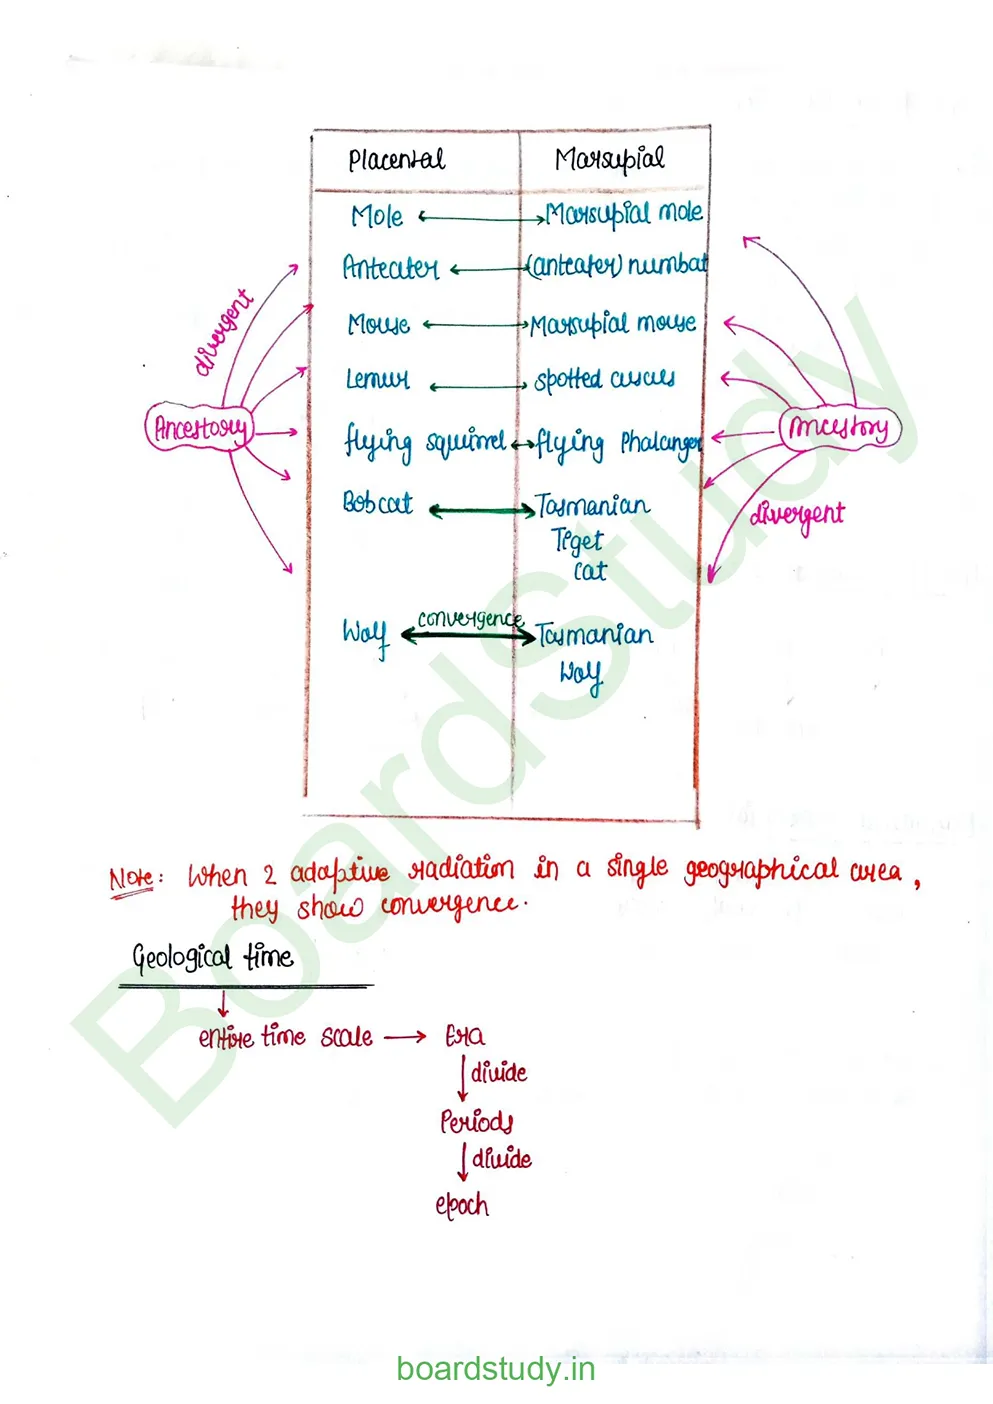 Placental Marsupial
Mole Marsupial mole
Anteater (anteater) numbat
Mouse Marsupial mouse
Lemur spotted cuscus
flying squirrel flying Phalanger
Bobcat Tasmanian
Tiget
cat
Wolf convergence Tasmanian
Wolf
divergent
Ancestory
Ancestory
divergent
Note: When 2 adaptive radiation in a single geographical area,
they show convergence.
Geological time
entire time scale Era
divide
Periods
divide
epoch
BoardStudy
boardstudy.in